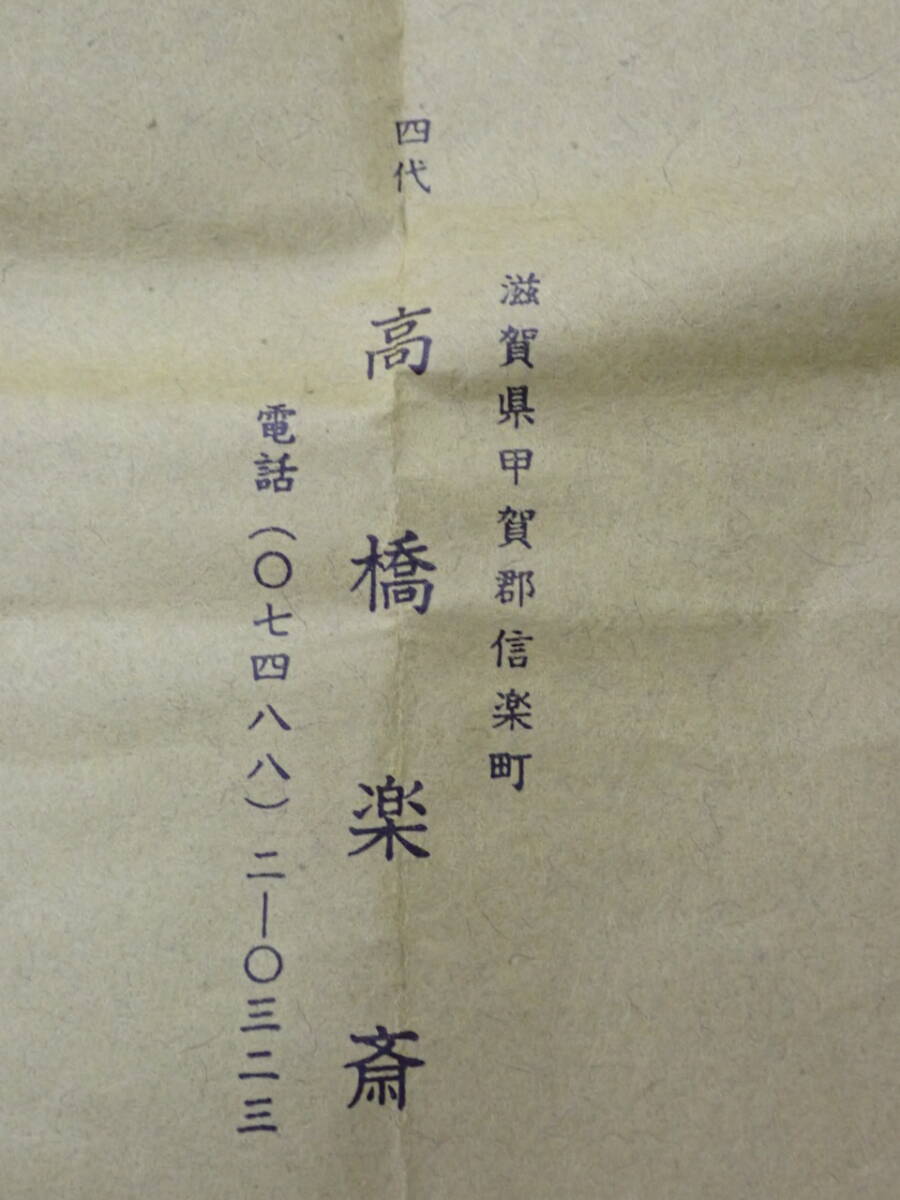 滋賀県甲賀郡信楽町
四代 高橋楽斎
電話(〇七四八八)二―〇三二三